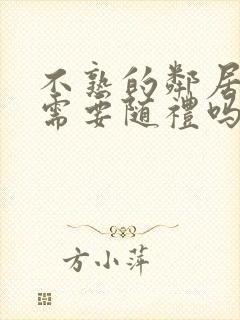 不熟的鄰居
需要随禮吗
方小萍